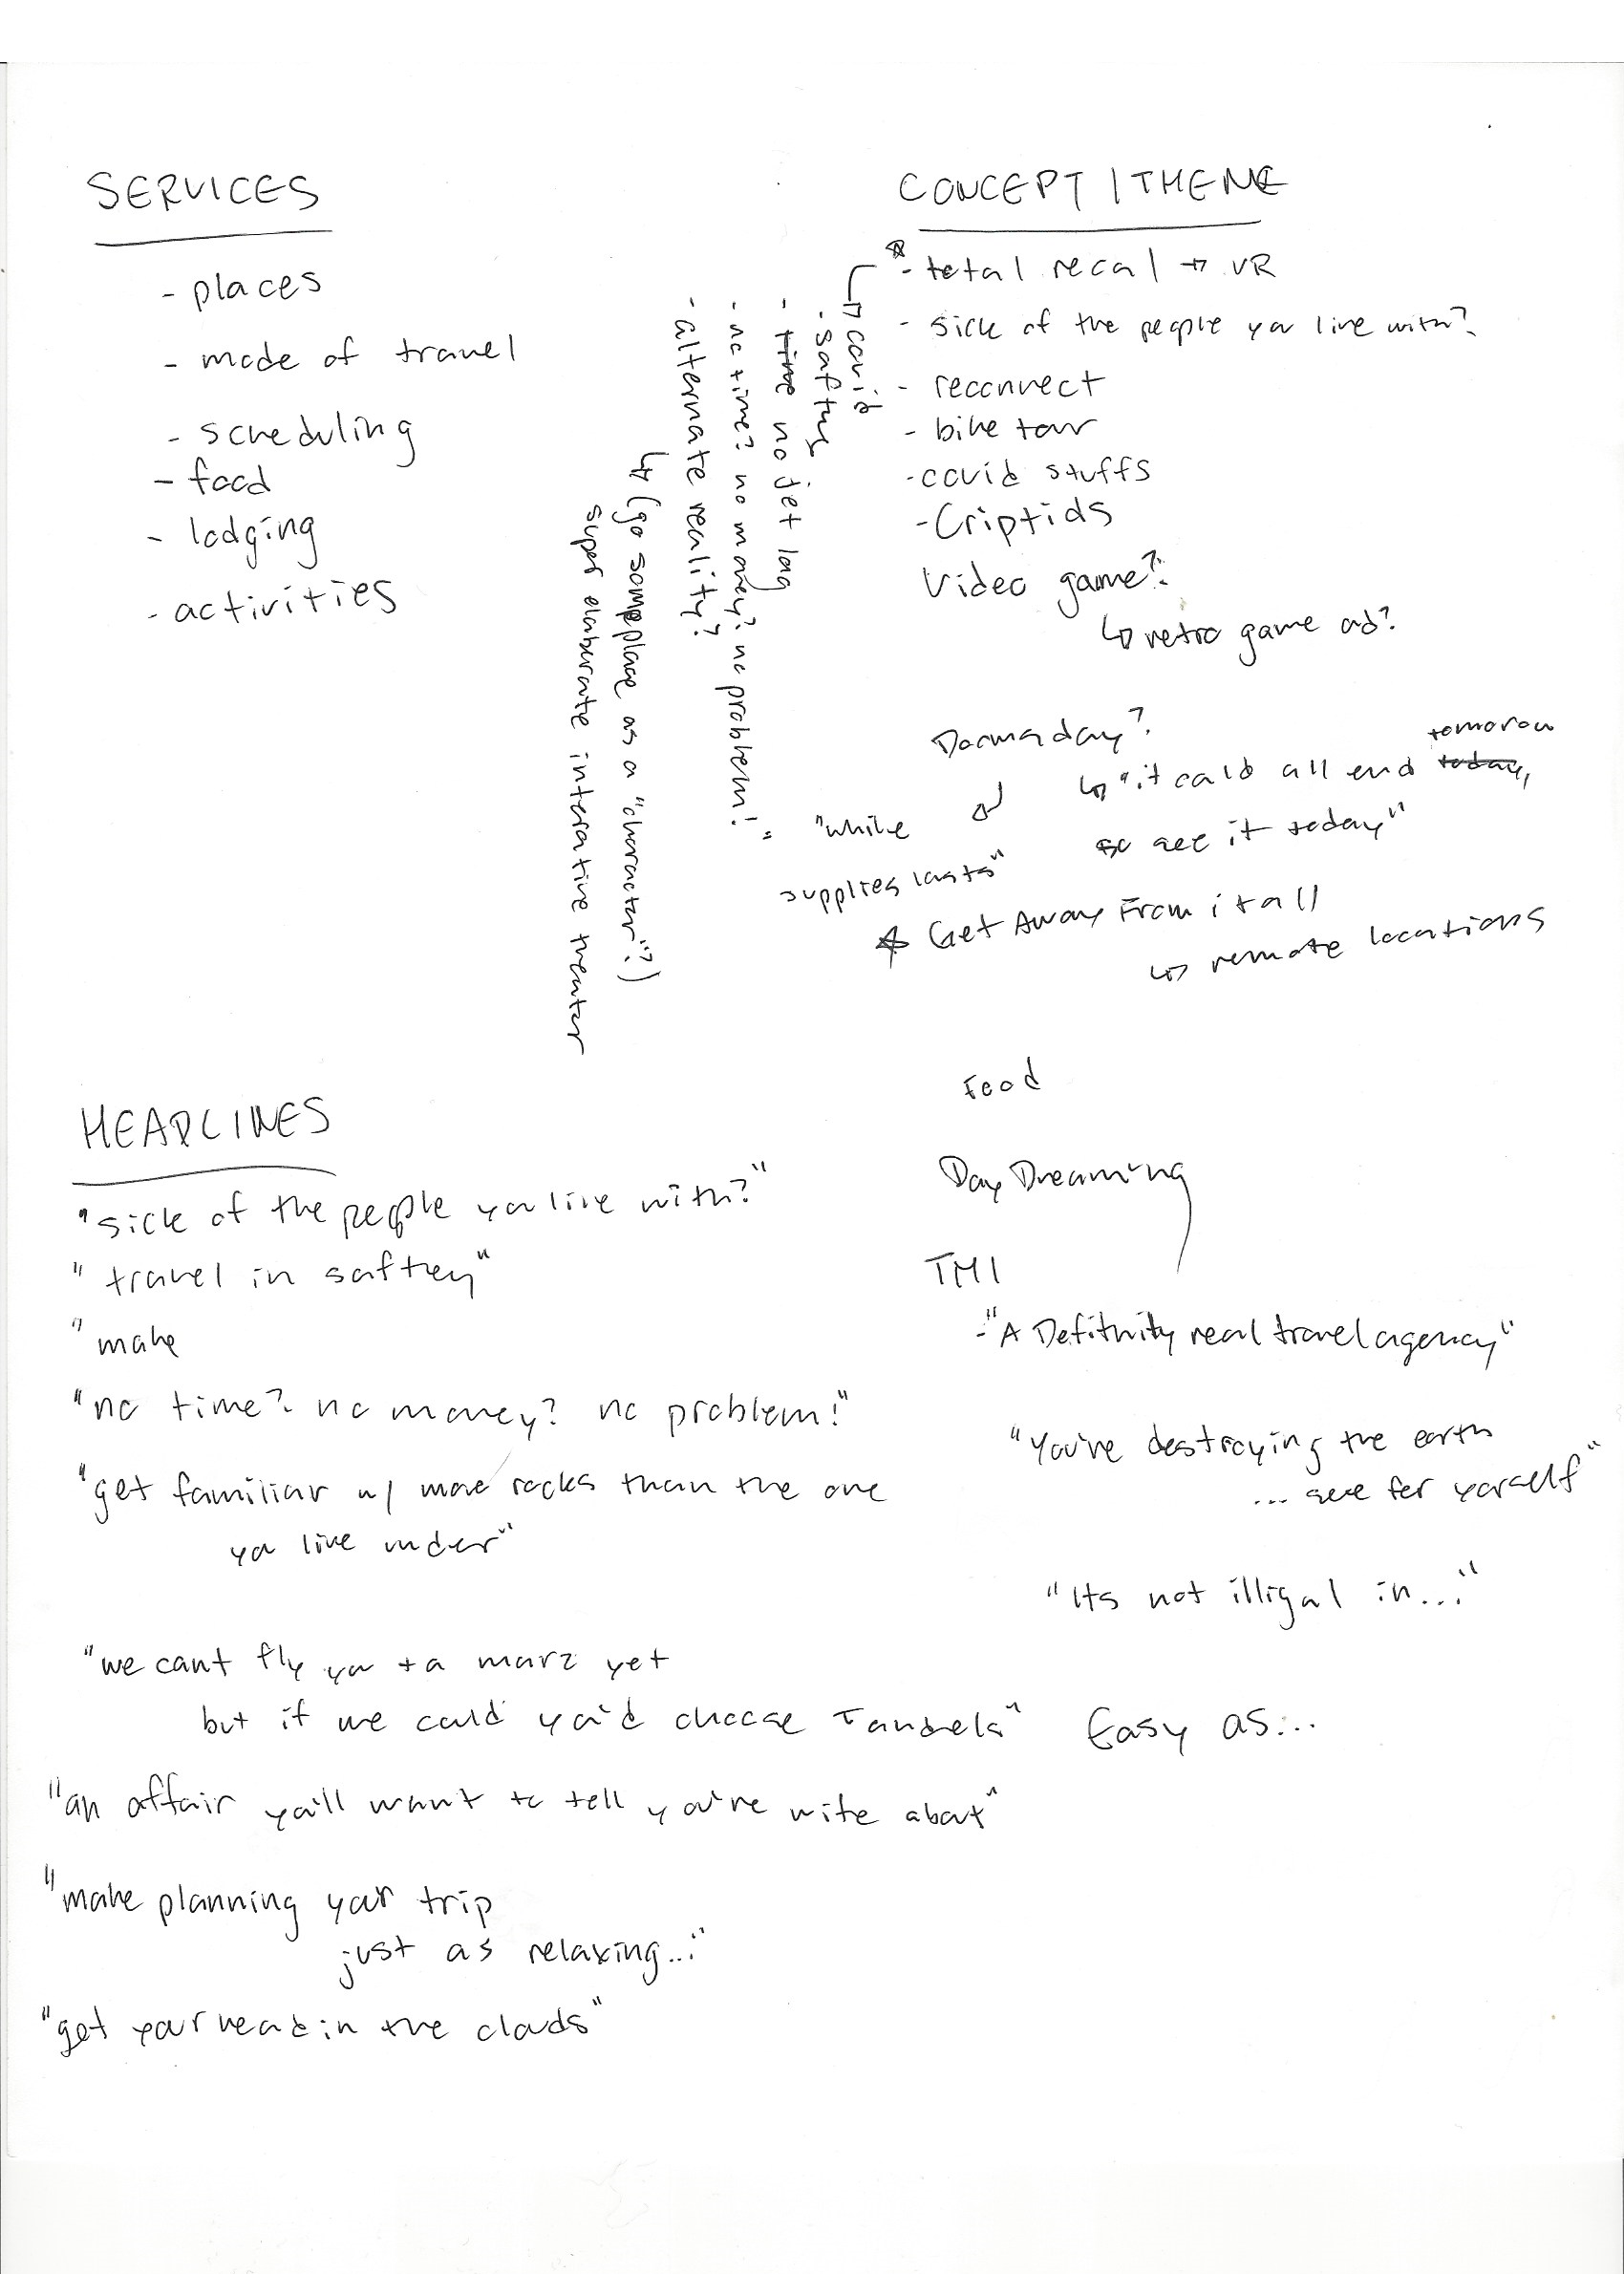 SERVICES
- places
- mode of travel
- scheduling
- food
- lodging
- activities
CONCEPT / THEME
- total recal → VR
- sick of the people you live with?
- reconnect
- bike tour
- covid stuffs
- Criptids
Video game?
↳ retro game ad?
↳ covid
- saftey
- time no jet lag
- no time? no money? no problem!"
- alternate reality?
↳ (go someplace as a "character"?)
super elaborate interative theater
Doomsday?
↳ "it could all end today, tomorow
so see it today"
"while
supplies lasts"
Get Away From it all
↳ remote locations
Food
Day Dreaming
TMI
- "A Defitnitly real travel agency"
"You're destroying the earth
... see for yourself"
"Its not illigal in..."
Easy as...
HEADLINES
"sick of the people you live with?"
"travel in saftey"
"make
"no time? no money? no problem!"
"get familiar w/ more rocks than the one
you live under"
"we cant fly you to marz yet
but if we could you'd choose Tandels"
"an affair you'll want to tell you're wife about"
"make planning your trip
just as relaxing..."
"get your head in the clouds"